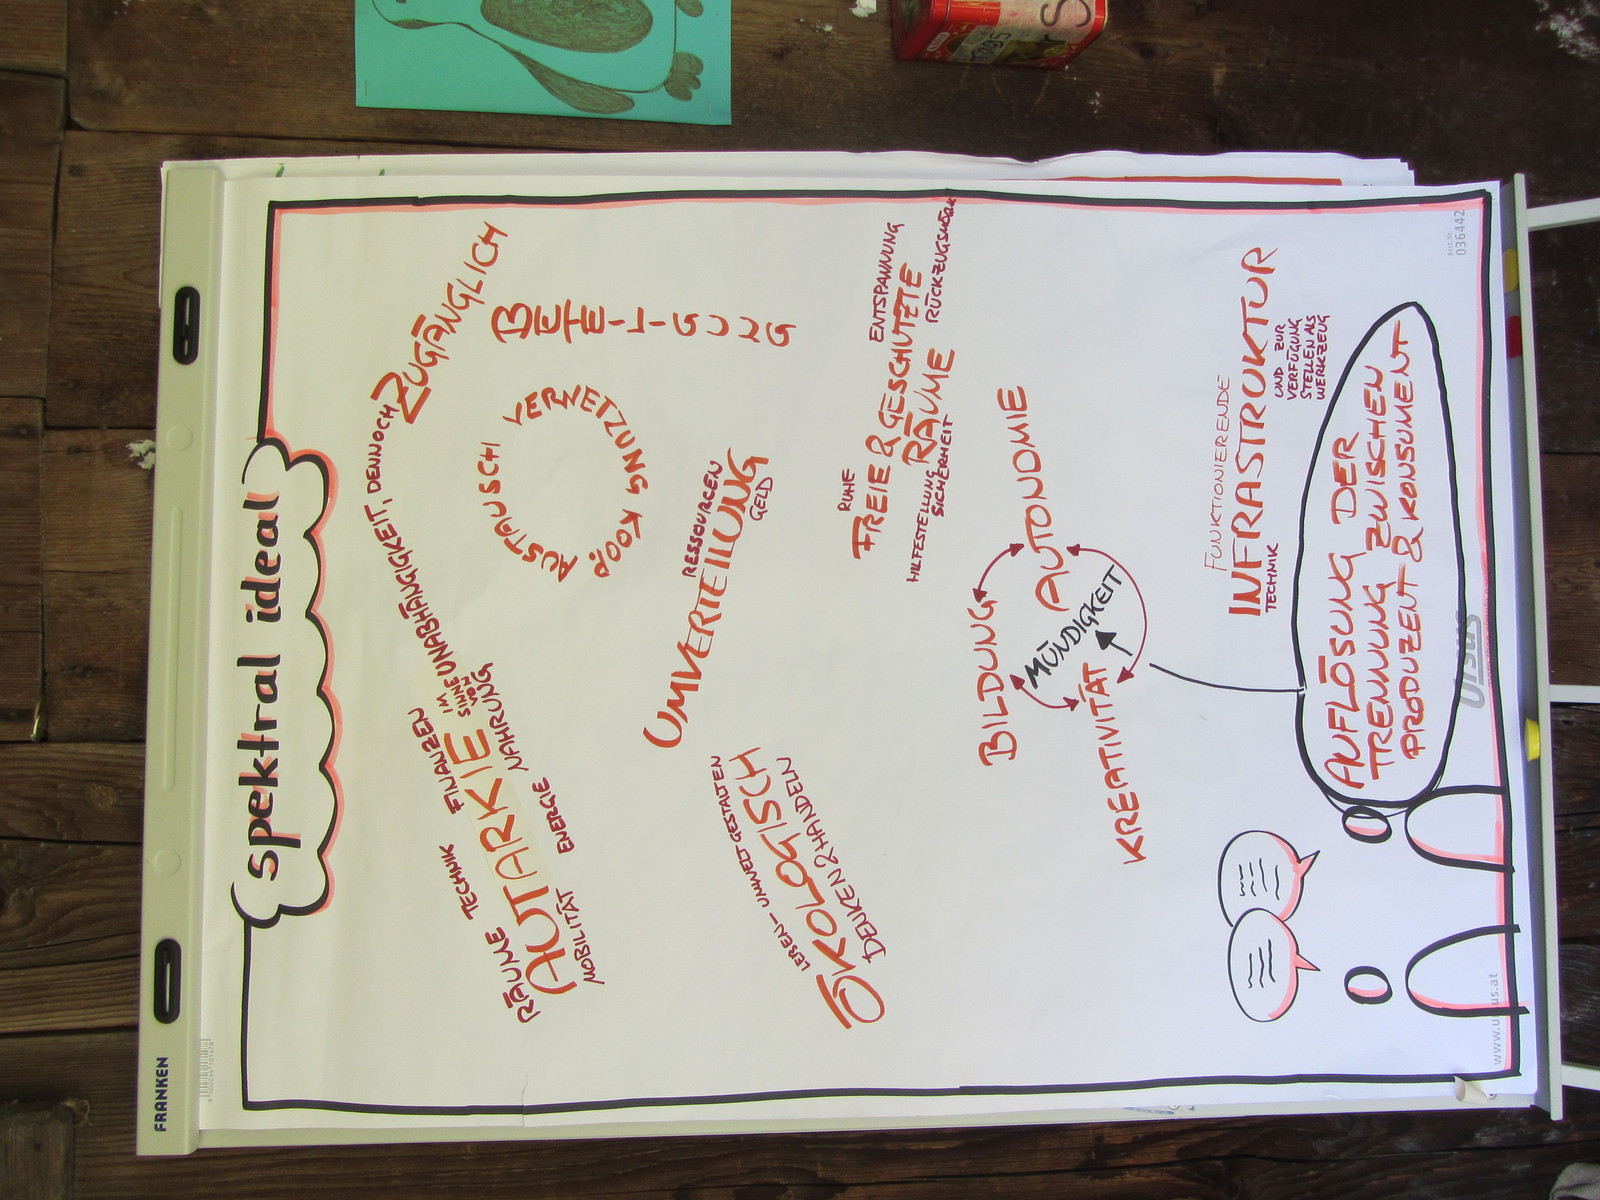 spektral ideal
RÄUME TECHNIK FINANZEN
AUTARKIE IM SINNE VON UNABHÄNGIGKEIT, DENNOCH ZUGÄNGLICH
MOBILITÄT ENERGIE NAHRUNG
AUSTAUSCH VERNETZUNG KOOP.
BETEILIGUNG
RESSOURCEN
UMVERTEILUNG
GELD
LEBEN- UMWELT GESTALTEN
ÖKOLOGISCH
DENKEN & HANDELN
RUHE ENTSPANNUNG
FREIE & GESCHÜTZTE
RÄUME RÜCKZUGSMÖGK
HILFESTELLUNG
SICHERHEIT
BILDUNG AUTONOMIE
MÜNDIGKEIT
KREATIVITÄT
FUNKTIONIERENDE
INFRASTRUKTUR
TECHNIK
UND ZUR
VERFÜGUNG
STELLEN ALS
WERKZEUG
AUFLÖSUNG DER
TRENNUNG ZWISCHEN
PRODUZENT & KONSUMENT
Ursus
Best.Nr.
036442
FRANKEN